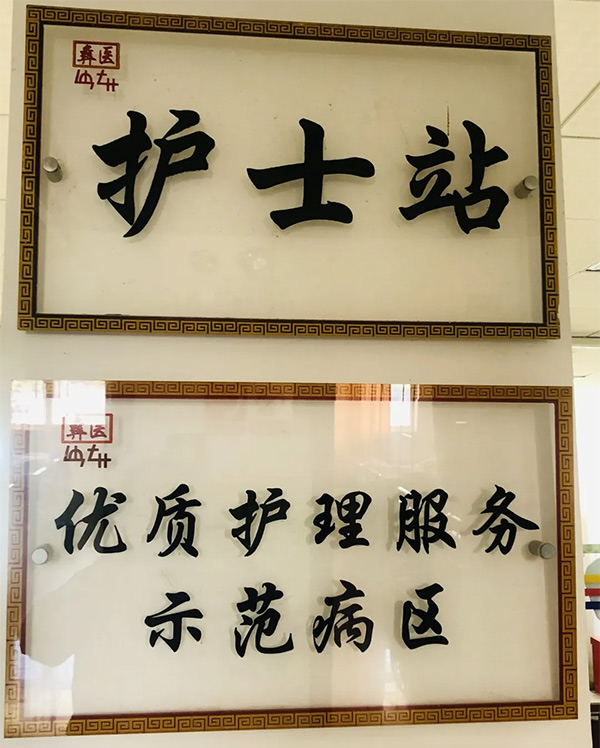 彝医
护士站
彝医
优质护理服务
示范病区